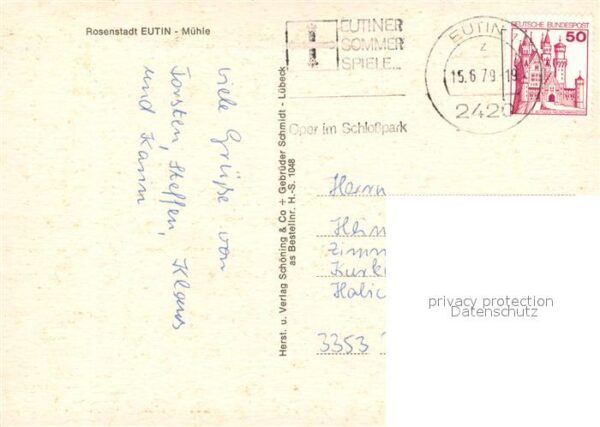 Rosenstadt EUTIN - Mühle
EUTINER
SOMMER
SPIELE...
Oper im Schloßpark
EUTIN
z
15.6.79-19
2420
DEUTSCHE BUNDESPOST
50
viele Grüße von
Torsten, Steffen, Klaus
und Karin
Herst. u. Verlag Schöning & Co + Gebrüder Schmidt - Lübeck
as Bestellnr. H.-S. 1048
Herrn
Hein
Zimm
Kurk
Halic
3353
privacy protection
Datenschutz